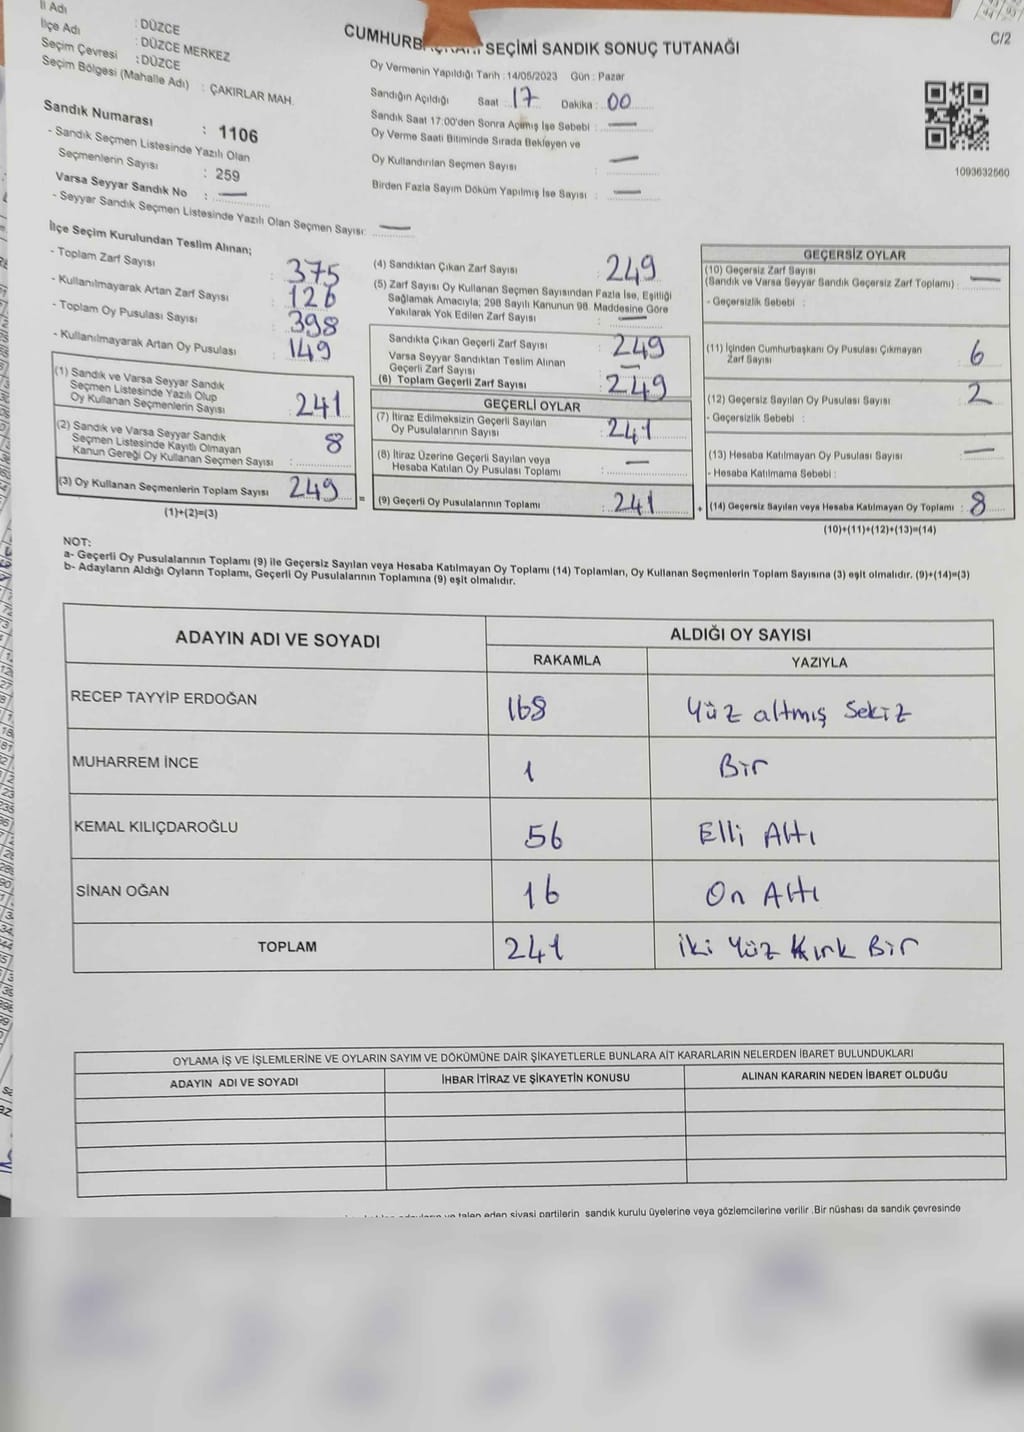 İl Adı : DÜZCE
İlçe Adı : DÜZCE MERKEZ
Seçim Çevresi : DÜZCE
Seçim Bölgesi (Mahalle Adı) : ÇAKIRLAR MAH.
Sandık Numarası : 1106
- Sandık Seçmen Listesinde Yazılı Olan
Seçmenlerin Sayısı : 259
Varsa Seyyar Sandık No : —
- Seyyar Sandık Seçmen Listesinde Yazılı Olan Seçmen Sayısı: —
SEÇİMİ SANDIK SONUÇ TUTANAĞI
C/2
Oy Vermenin Yapıldığı Tarih : 14/05/2023 Gün : Pazar
Sandığın Açıldığı Saat : 17 Dakika : 00
Sandık Saat 17:00'den Sonra Açılmış İse Sebebi : —
Oy Verme Saati Bitiminde Sırada Bekleyen ve
Oy Kullandırılan Seçmen Sayısı : —
Birden Fazla Sayım Döküm Yapılmış İse Sayısı : —
1093632560
İlçe Seçim Kurulundan Teslim Alınan;
- Toplam Zarf Sayısı : 375
- Kullanılmayarak Artan Zarf Sayısı : 126
- Toplam Oy Pusulası Sayısı : 398
- Kullanılmayarak Artan Oy Pusulası : 149
(1) Sandık ve Varsa Seyyar Sandık
Seçmen Listesinde Yazılı Olup
Oy Kullanan Seçmenlerin Sayısı : 241
(2) Sandık ve Varsa Seyyar Sandık
Seçmen Listesinde Kayıtlı Olmayan
Kanun Gereği Oy Kullanan Seçmen Sayısı : 8
(3) Oy Kullanan Seçmenlerin Toplam Sayısı 249
(1)+(2)=(3)
(4) Sandıktan Çıkan Zarf Sayısı : 249
(5) Zarf Sayısı Oy Kullanan Seçmen Sayısından Fazla İse, Eşitliği
Sağlamak Amacıyla; 298 Sayılı Kanunun 98. Maddesine Göre
Yakılarak Yok Edilen Zarf Sayısı : —
Sandıkta Çıkan Geçerli Zarf Sayısı : 249
Varsa Seyyar Sandıktan Teslim Alınan
Geçerli Zarf Sayısı : —
(6) Toplam Geçerli Zarf Sayısı : 249
GEÇERLİ OYLAR
(7) İtiraz Edilmeksizin Geçerli Sayılan
Oy Pusulalarının Sayısı : 241
(8) İtiraz Üzerine Geçerli Sayılan veya
Hesaba Katılan Oy Pusulası Toplamı : —
= (9) Geçerli Oy Pusulalarının Toplamı : 241
GEÇERSİZ OYLAR
(10) Geçersiz Zarf Sayısı
(Sandık ve Varsa Seyyar Sandık Geçersiz Zarf Toplamı) : —
- Geçersizlik Sebebi :
(11) İçinden Cumhurbaşkanı Oy Pusulası Çıkmayan
Zarf Sayısı : 6
(12) Geçersiz Sayılan Oy Pusulası Sayısı : 2
- Geçersizlik Sebebi :
(13) Hesaba Katılmayan Oy Pusulası Sayısı : —
- Hesaba Katılmama Sebebi :
+ (14) Geçersiz Sayılan veya Hesaba Katılmayan Oy Toplamı : 8
(10)+(11)+(12)+(13)=(14)
NOT:
a- Geçerli Oy Pusulalarının Toplamı (9) ile Geçersiz Sayılan veya Hesaba Katılmayan Oy Toplamı (14) Toplamları, Oy Kullanan Seçmenlerin Toplam Sayısına (3) eşit olmalıdır. (9)+(14)=(3)
b- Adayların Aldığı Oyların Toplamı, Geçerli Oy Pusulalarının Toplamına (9) eşit olmalıdır.
ADAYIN ADI VE SOYADI
ALDIĞI OY SAYISI
RAKAMLA YAZIYLA
RECEP TAYYİP ERDOĞAN 168 Yüz altmış Sekiz
MUHARREM İNCE 1 Bir
KEMAL KILIÇDAROĞLU 56 Elli Altı
SİNAN OĞAN 16 On Altı
TOPLAM 241 iki Yüz Kırk Bir
OYLAMA İŞ VE İŞLEMLERİNE VE OYLARIN SAYIM VE DÖKÜMÜNE DAİR ŞİKAYETLERLE BUNLARA AİT KARARLARIN NELERDEN İBARET BULUNDUKLARI
ADAYIN ADI VE SOYADI İHBAR İTİRAZ VE ŞİKAYETİN KONUSU ALINAN KARARIN NEDEN İBARET OLDUĞU
talep eden siyasi partilerin sandık kurulu üyelerine veya gözlemcilerine verilir .Bir nüshası da sandık çevresinde